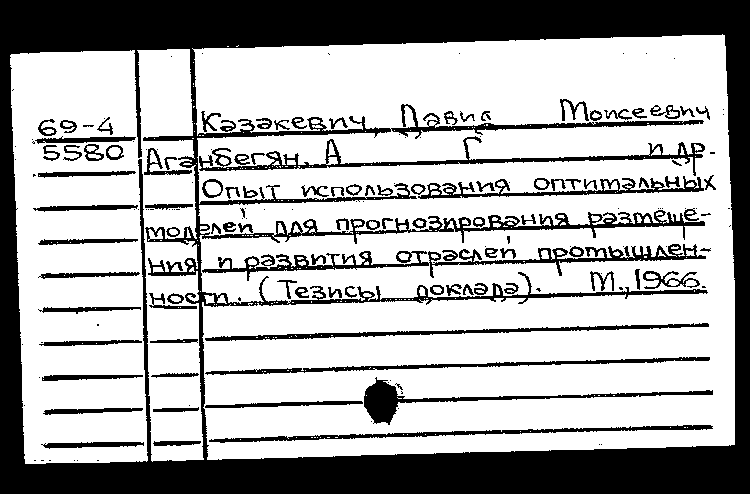 69-4 Казакевич, Давид Моисеевич
5580 Аганбегян, А Г и др.
Опыт использования оптимальных
моделей для прогнозирования размеще-
ния и развития отраслей промышлен-
ности. (Тезисы доклада). М., 1966.